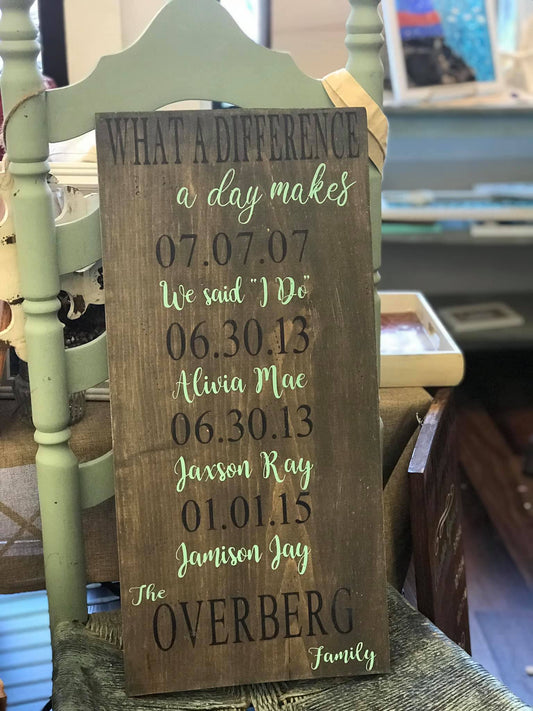 WHAT A DIFFERENCE
a day makes
07.07.07
We said "I Do"
06.30.13
Alivia Mae
06.30.13
Jaxson Ray
01.01.15
Jamison Jay
The
OVERBERG
Family